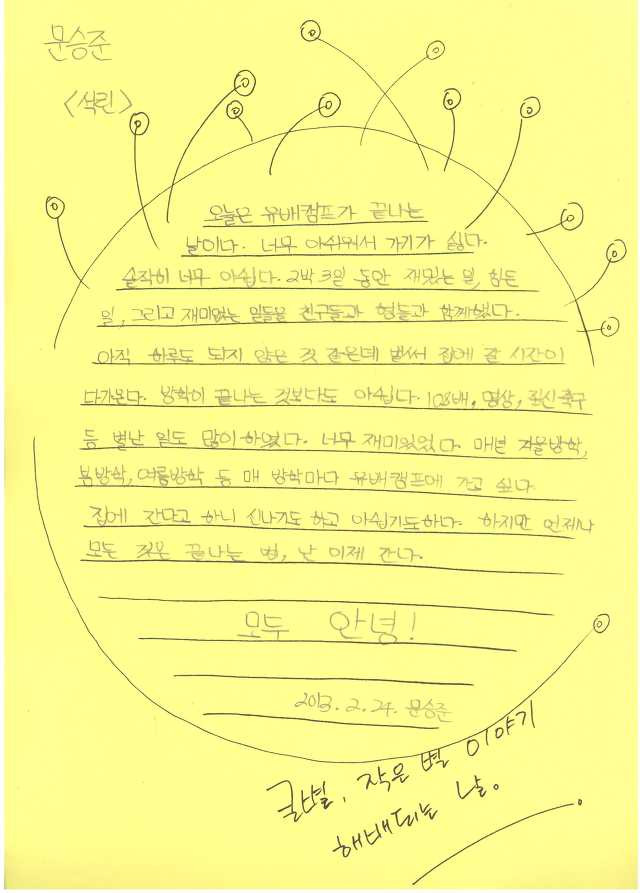 문승준
<석린>
오늘은 유배캠프가 끝나는
날이다. 너무 아쉬워서 가기가 싫다.
솔직히 너무 아쉽다. 2박 3일 동안 재밌는 일, 힘든
일, 그리고 재미없는 일들을 친구들과 형들과 함께했다.
아직 하루도 되지 않은 것 같은데 벌써 집에 갈 시간이
다가온다. 방학이 끝나는 것보다도 아쉽다. 108배, 명상, 짚신축구
등 별난 일도 많이 하였다. 너무 재미있었다. 매년 겨울방학,
봄방학, 여름방학 등 매 방학마다 유배캠프에 가고 싶다.
집에 간다고 하니 신나기도 하고 아쉽기도하다. 하지만 언제나
모든 것은 끝나는 법, 난 이제 간다.
모두 안녕!
2013. 2. 24. 문승준
글별, 작은 별 이야기
해배되는 날.